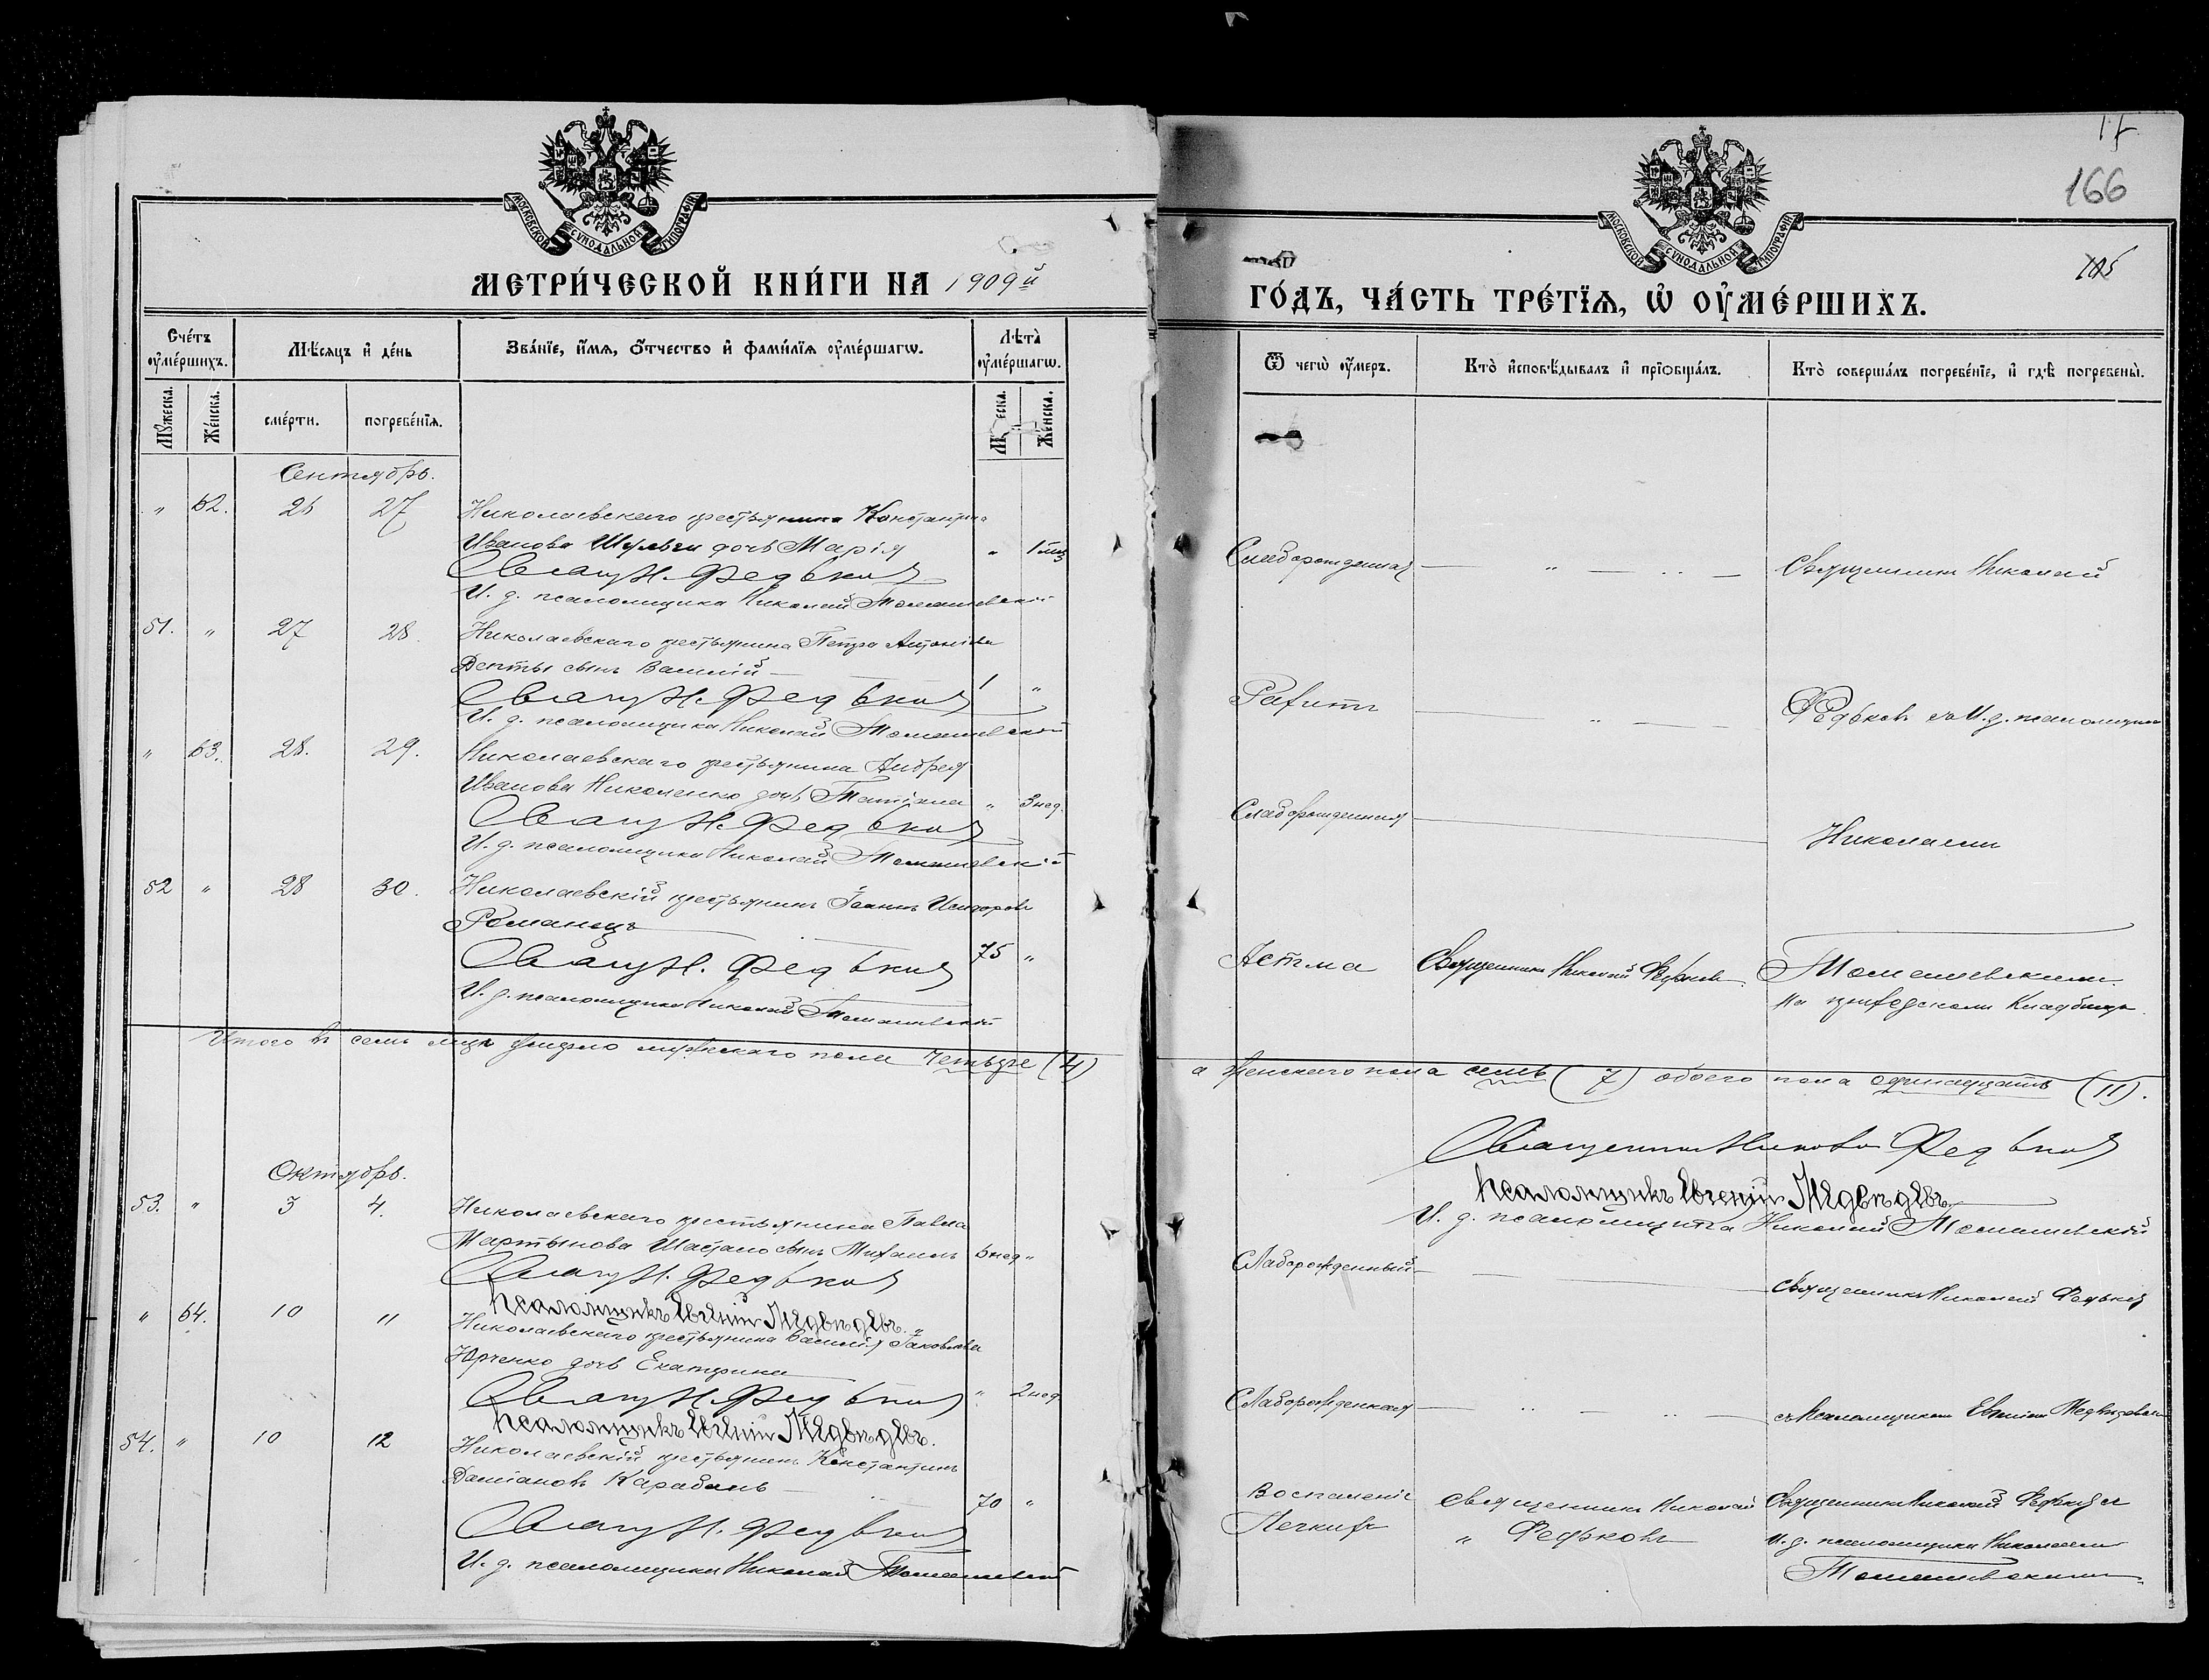 17
166
105
МОСКОВСКОЙ СУНОДАЛЬНОЙ ТИПОГРАФІИ
МЕТРИ́ЧЕСКОЙ КНИ́ГИ НА 1909й
Сче́тъ ᲂу҆ме́ршихъ.
Мѣ́сяцъ и҆ де́нь
Зва́нїе, и҆́мя, ѻ҆́тчество и҆ фами́лїя ᲂу҆ме́ршагѡ.
Лѣта̀ ᲂу҆ме́ршагѡ.
Мꙋ́жеска.
Же́нска.
сме́рти.
погребе́нїя.
Же́нска.
Сентябрь.
" 62. 26 27 Николаевскаго крестьянина Константина
Иванова Шульги дочь Марія " 1 мѣс
Свящ Н. Федьковъ
И. д. псаломщика Николай Томашевскій
51. " 27 28 Николаевскаго крестьянина Петра Антоніева
сынъ Василій 1 "
Свящ Н. Федьковъ
И. д. псаломщика Николай Томашевскій
" 63. 28. 29. Николаевскаго крестьянина Андрея
Иванова Николенко дочь Татіана " 3 нед.
Свящ Н. Федьковъ
И. д. псаломщика Николай Томашевскій
52 " 28 30. Николаевскій крестьянинъ Іоаннъ Исидоровъ
Романецъ 75 "
Свящ Н. Федьковъ
И. д. псаломщика Николай Томашевскій
Итого въ семъ мцѣ умерло мужескаго пола четыре (4)
Октябрь.
53. " 3 4. Николаевскаго крестьянина Павла
Мартынова сынъ Михаилъ 6 нед "
Свящ Н. Федьковъ
Псаломщикъ Евгеній Медвѣдевъ.
" 64. 10 11 Николаевскаго крестьянина Василія Іаковлева
Юрченко дочь Екатерина " 2 нед
Свящ Н. Федьковъ
Псаломщикъ Евгеній Медвѣдевъ.
54. " 10 12 Николаевскій крестьянинъ Константинъ
Даміановъ Карабань 70 "
Свящ Н. Федьковъ
И. д. псаломщика Николай Томашевскій
МОСКОВСКОЙ СУНОДАЛЬНОЙ ТИПОГРАФІИ
ГО́ДЪ, ЧА́СТЬ ТРЕ́ТЇЯ, Ѡ҆ ОУ҆МЕ́РШИХЪ.
Ѿ чегѡ̀ ᲂу҆́меръ.
Кто̀ и҆сповѣ́дывалъ и҆ прїѡбща́лъ.
Кто̀ соверша́лъ погребе́нїе, и҆ гдѣ̀ погребены̀.
Слаборожденная " Священникъ Николай
" Федьковъ съ И. д. псаломщика
Слаборожденная Николаемъ
Астма Священникъ Николай Федьковъ Томашевскимъ
На приходскомъ кладбищѣ.
а женскаго пола семь (7) обоего пола одинадцать (11).
Священникъ Николай Федьковъ
Псаломщикъ Евгеній Медвѣдевъ
И. д. псаломщика Николай Томашевскій
Слаборожденный Священникъ Николай Федьковъ
Слаборожденная съ псаломщикомъ Евгеніемъ Медвѣдевымъ
Воспаленіе Священникъ Николай Священникъ Николай Федьковъ съ
Легкихъ " Федьковъ и. д. псаломщика Николаемъ
Томашевскимъ